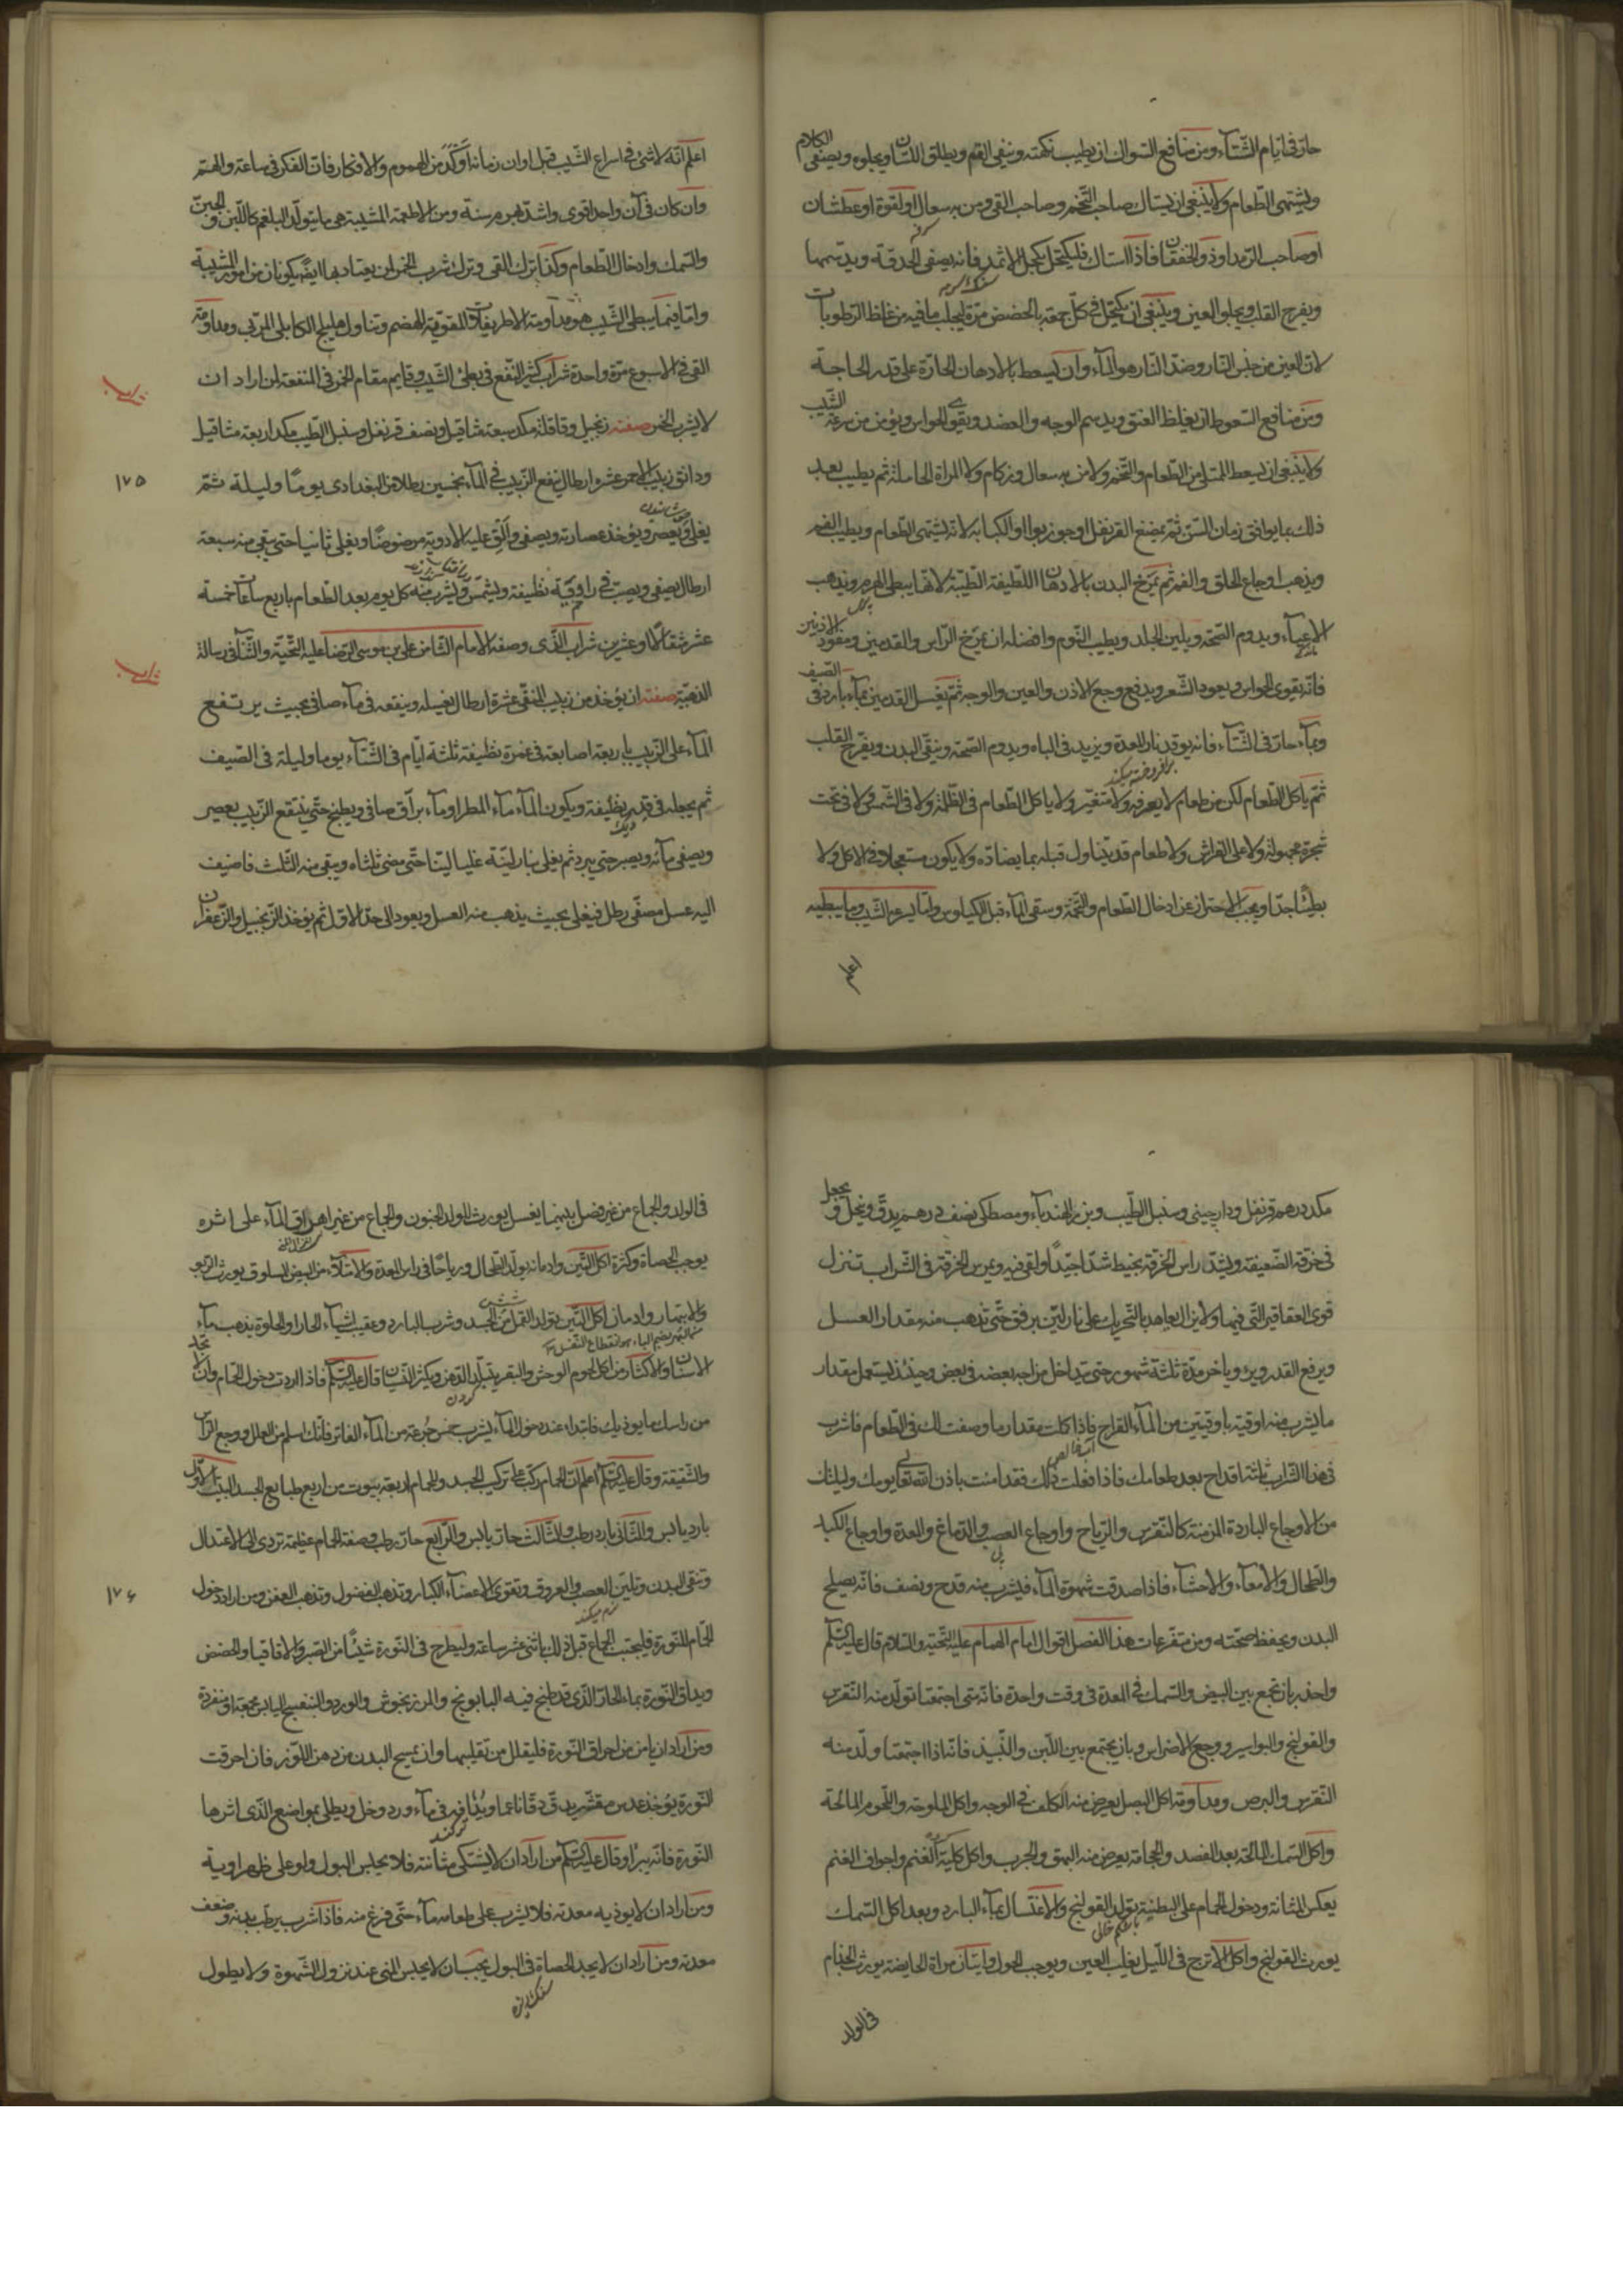 حار فی ایام الشتآء ومن منافع السواک ان یطیب نکهته وینقی الفم ویطلق اللسان ویجلوه ویصفی الکلام
ویشتهی الطعام ولا ینبغی ان یستاک صاحب التخم وصاحب القی ومن به سعال او لقوة او عطشان
او صاحب الرمد او ذو الخفقان فاذا استاک فلیکتحل بکحل الاثمد فانه یصفی الحدقة
ویفرح القلب ویجلو العین وینبغی ان یکتحل فی کل جمعة بالحضض مرة لیجلب ما فیه من غلظ الرطوبات
لان العین من جنس النار وضد النار هو المآء وان یسعط بالادهان الحارة علی قدر الحاجة
ومن منافع السعوط ان یغلظ العنق ویدسم الوجه والعضد ویقوی الحواس ویؤمن من سرعة الشیب
ولا ینبغی ان یسعط الممتلی من الطعام والتخم ولا من به سعال وزکام ولا المراة الحاملة ثم یطیب بعد
ذلک بما یوافق زمان السن ثم یمضغ القرنفل او جوز بوا او الکبابه لانه یشتهی الطعام ویطیب الفم
ویذهب اوجاع الحلق والفم ثم یمرخ البدن بالادهان اللطیفة الطیبة لانها یبطی الهرم ویذهب
الاعیآء ویدوم الصحة ویلین الجلد ویطیب النوم وافضله ان یمرخ الراس والقدمین الاذنین
فانه یقوی الحواس ویعود الشعر ویدفع وجع الاذن والعین والوجه ثم یغسل القدمین بمآء بارد فی الصیف
وبمآء حار فی الشتآء فانه یوقد نار المعدة ویزید فی الباه ویدوم الصحة وینقی البدن ویفرح القلب
ثم یاکل الطعام لکن من طعام لا یعرفه ولا متغیر ولا یاکل الطعام فی الظلمة ولا فی الشمس ولا فی تحت
شجرة مجهولة ولا علی الفراش ولا طعام قد یتناول قبله بما یضاده ولا یکون مستعجلا فی الاکل ولا
بطیئا جدا ویجب الاحتراز عن ادخال الطعام والتخمة وسقی المآء قبل الکیلوس واما یسرع الشیب وما یبطیه
اعلم انه لا شئ فی اسراع الشیب قبل اوان زمانه اوکد من الهموم والافکار فان الفکر فی ساعة والهم
وان کان فی آن واحد اقوی واشد هرم سنة ومن الاطعمة المشیبة هی ما یتولد البلغم کاللبن والجبن
والسمک وادخال الطعام وکذا ترک القی وترک شرب الخمر لمن یعتاد بها ایضا یکونان من امور الشیبة
واما فیما یبطی الشیب هو مداومة الاطریفلات المقویة للهضم وتناول هلیلج الکابلی المربی ومداومة
القی فی الاسبوع مرة واحدة شراب کثیر النفع فی بطئ الشیب وقایم مقام الخمر فی المنفعة لمن اراد ان
لا یشرب الخمر صفته زنجبیل وقاقلة مکد سبعة مثاقیل ونصف قرنفل وسنبل الطیب مکد اربعة مثاقیل
ودانق زبیب الاحمر عشر ارطال ینقع الزبیب فی المآء بخمسین رطلا من البغدادی یوما ولیلة ثم
یغلی ویعصر ویؤخذ عصارته ویصفی والق علیه الادویة مرضوضا ویغلی ثانیا حتی یبقی منه سبعة
ارطال یصفی ویصب فی راوقیة نظیفة ویشمس ویشرب منه کل یوم بعد الطعام باربع ساعات خمسة
عشر مثقالا او عشرین شراب الذی وصفه الامام الثامن علی بن موسی الرضا علیه التحیة والثنآء فی رسالة
الذهبیة صفته ان یؤخذ من زبیب المنقی عشرة ارطال یغسله وینقعه فی مآء صافی بحیث یرتفع
المآء علی الزبیب باربعة اصابعه فی غمرة نظیفة ثلثة ایام فی الشتآء یوما ولیلة فی الصیف
ثم یجعله فی قدر نظیفة ویکون المآء مآء المطر او مآء براق صافی ویطبخ حتی ینتقع الزبیب یعصر
ویصفی مآئه ویصبر حتی یبرد ثم یغلی بنار لینة غلیا لینا حتی مضی ثلثاه ویبقی منه الثلث فاضیف
الیه عسل مصفی رطل فیغلی بحیث یذهب منه العسل ویعود الی حد الاول ثم یؤخذ الزنجبیل والزعفران
شراب
١٧٥
شراب
اعلم
مکد درهم قرنفل ودارچینی وسنبل الطیب وبزر الهندبآء ومصطکی نصف درهم یدق وینخل ویجعل
فی خرقة الضعیفة ویشد راس الخرقة بخیط شدا جیدا والقی فیه ویمرس الخرقة فی الشراب تنزل
قوی العقاقیر التی فیها ولا یزال یعاهد بالتحریک علی نار لین برفق حتی تذهب منه مقدار العسل
ویرفع القدر ویبرد ویاخر مدة ثلثة شهور حتی یتداخل مزاجه بعضه فی بعض وحینئذ یستعمل مقدار
ما یشرب منه اوقیة باوقیتین من المآء القراح فاذا اکلت مقدار ما وصفت لک فی الطعام فاشرب
فی هذا الشراب ثلثة اقداح بعد طعامک فاذا فعلت ذلک فقد امنت باذن الله تعالی یومک ولیلتک
من الاوجاع الباردة المزمنة کالنقرس والریاح واوجاع العصب والدماغ والمعدة واوجاع الکبد
والطحال والامعآء والاحشآء فاذا صدقت شهوة المآء فلیشرب منه قدح ونصف فانه یصلح
البدن ویحفظ صحته ومن متفرعات هذا الفصل اقوال امام الهمام علیه التحیة والسلام قال علیه السلم
واحذر بان تجمع بین البیض والسمک فی المعدة فی وقت واحدة فانه متی اجتمعتا تولد منه النقرس
والقولنج والبواسیر ووجع الاضراس وبان یجتمع بین اللبن والنبیذ فانه اذا اجتمعتا ولد منه
النقرس والبرص ومداومة اکل البصل یعرض منه الکلف فی الوجه واکل الملوحة واللحوم المالحة
واکل السمک المالحة بعد الفصد والحجامة یعرض منه البهق والجرب واکل کلیة الغنم واجواف الغنم
یعکس المثانة ودخول الحمام علی البطنة یولد القولنج والاغتسال بمآء البارد وبعد اکل السمک
یورث القولنج واکل الاترج فی اللیل یقلب العین ویوجب الحول واتیان مراة الحایضة یورث الجذام
فی الولد
فی الولد والجماع من غیر فصل بینهما یغسل یورث للولد الجنون والجماع من غیر اهراق المآء علی اثره
یوجب الحصاة وکثرة اکل البیض وادمانه یولد الطحال وریاحا فی راس المعدة والامتلآء من البیض السلوق یورث الربو
والابتهار وادمان اکل التین یتولد القمل من الجسد وشرب البارد وعقیب اشیآء الحار او الحلوة یذهب مآء
الاسنان والاکثار من اکل لحوم الوحش والبقر یتبلد الذهن ویکثر النسیان قال علیه السلم فاذا اردت دخول الحمام وان لا تجد
من راسک ما یوذیک فابتداء عند دخول المآء یشرب خمس جرعة من المآء الفاتر فانک اسلم من العلل ووجع الراس
والشقیقة وقال علیه السلم اعلم ان الحمام رکب علی ترکیب الجسد والحمام اربعة بیوت من اربع طبایع الجسد البیت الاول
بارد یابس والثانی بارد رطب والثالث حار یابس والرابع حار رطب وصفة الحمام عظیمة تردی الی الاعتدال
وتنقی البدن وتلین العصب والعروق وتقوی الاعضآء الکبار وتذهب الفضول وتذهب العفن ومن اراد دخول
الحمام للنورة فلیجتنب الجماع قبل ذلک باثنی عشر ساعة ولیطرح فی النورة شیئا من الصبر والاقاقیا والحضض
ویداق النورة بماء الحار الذی قد طبخ فیه البابونج والمرزنجوش والورد والبنفسج الیابس مجمعة او منفردة
ومن اراد ان یامن من احراق النورة فلیقلل من تقلیبها وان یمسح البدن من دهن اللوز فان احرقت
النورة یؤخذ عدس مقشر یدق دقا ناعما ویذاف فی مآء ورد وخل ویطلی بمواضع الذی اثرها
النورة فانه یبرا وقال علیه السلم من اراد ان لا یشتکی مثانته فلا یحبس البول ولو علی ظهر دابة
ومن اراد ان لا یوذیه معدته فلا یشرب علی طعامه مآء حتی فرغ منه فاذا شرب یرطب بدنه وضعف
معدته ومن اراد ان لا یجد الحصاة فی البول یجب ان لا یحبس المنی عند نزول الشهوة ولا یطول
١٧٦